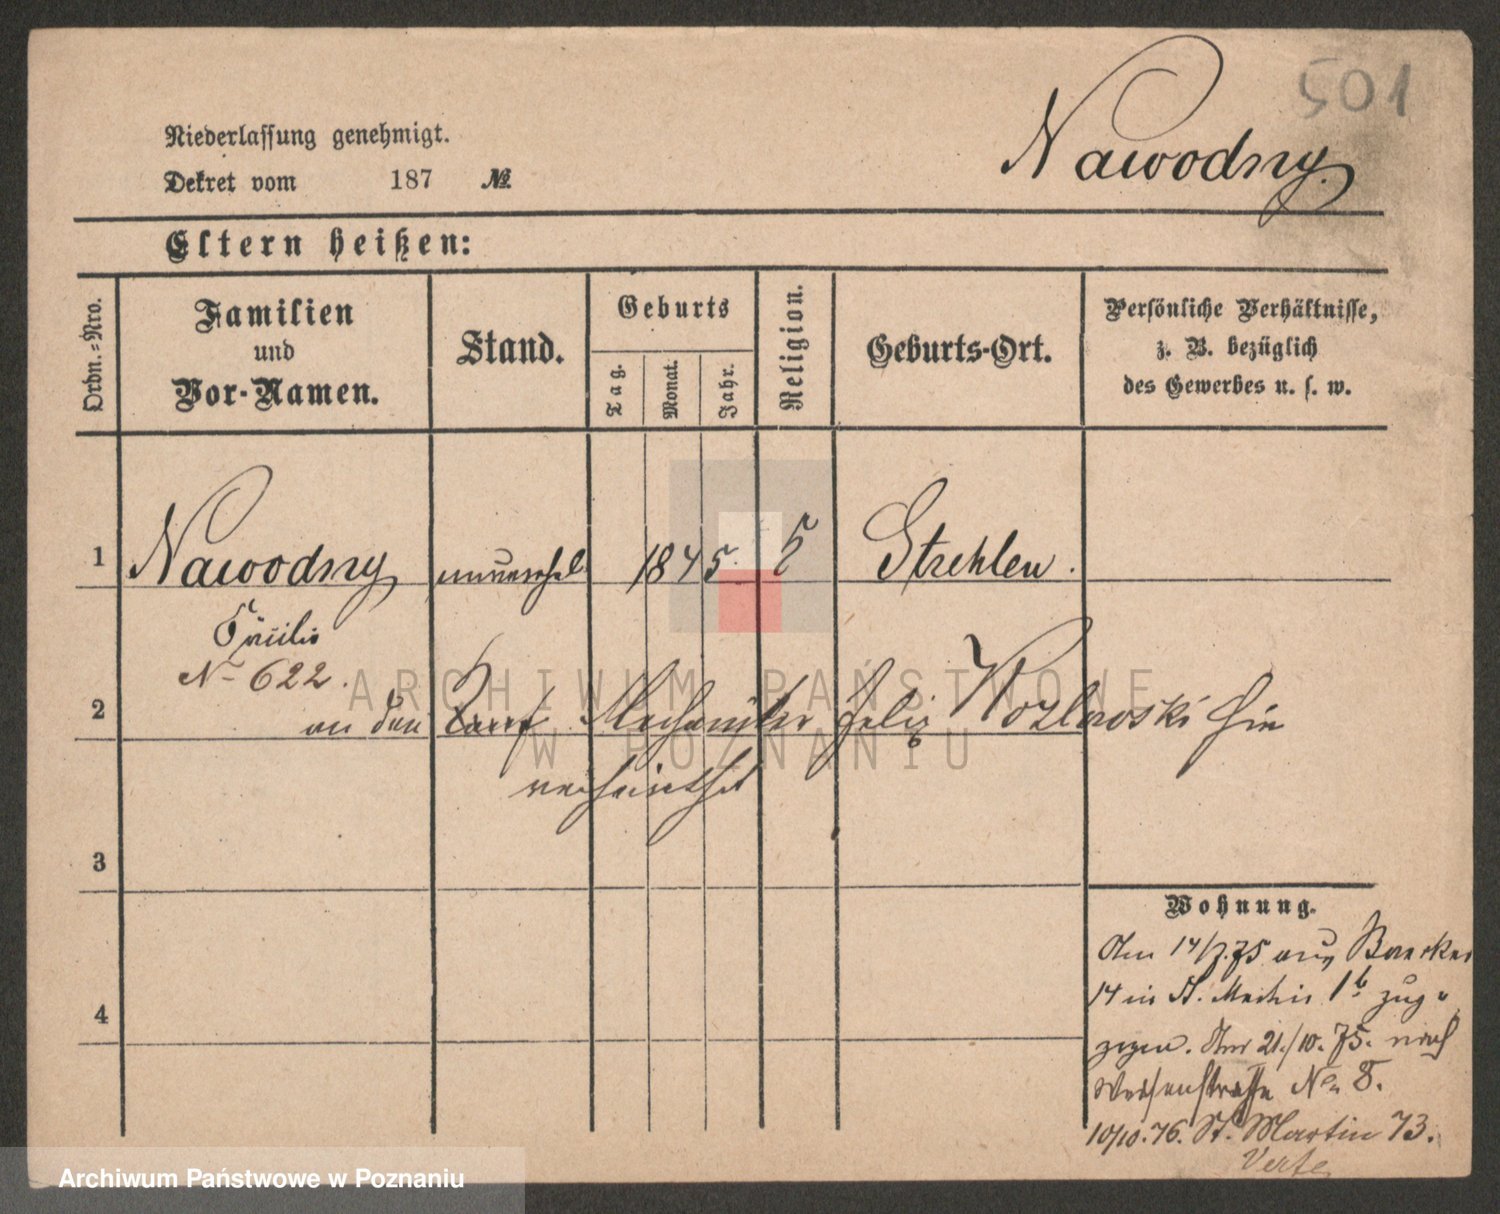 501
Nawodny.
Niederlassung genehmigt.
Dekret vom 187 №
Eltern heißen:
Ordn.-Nro.
Familien
und
Vor-Namen.
Stand.
Geburts
Tag.
Monat.
Jahr.
Religion.
Geburts-Ort.
Persönliche Verhältnisse,
z. B. bezüglich
des Gewerbes u. s. w.
1 Nawodny unverehel. 1845. Strehlen.
No 622.
2 an den Mechaniker Felix Kozlowski hier
verheirathet
3
4
Wohnung.
Am 14/7.75 aus Baecker
14 in St. Martin 1b zuge-
zogen. Am 21./10.75. nach
No 8.
10/10.76. St. Martin 73.
Verte
ARCHIWUM PAŃSTWOWE
W POZNANIU
Archiwum Państwowe w Poznaniu